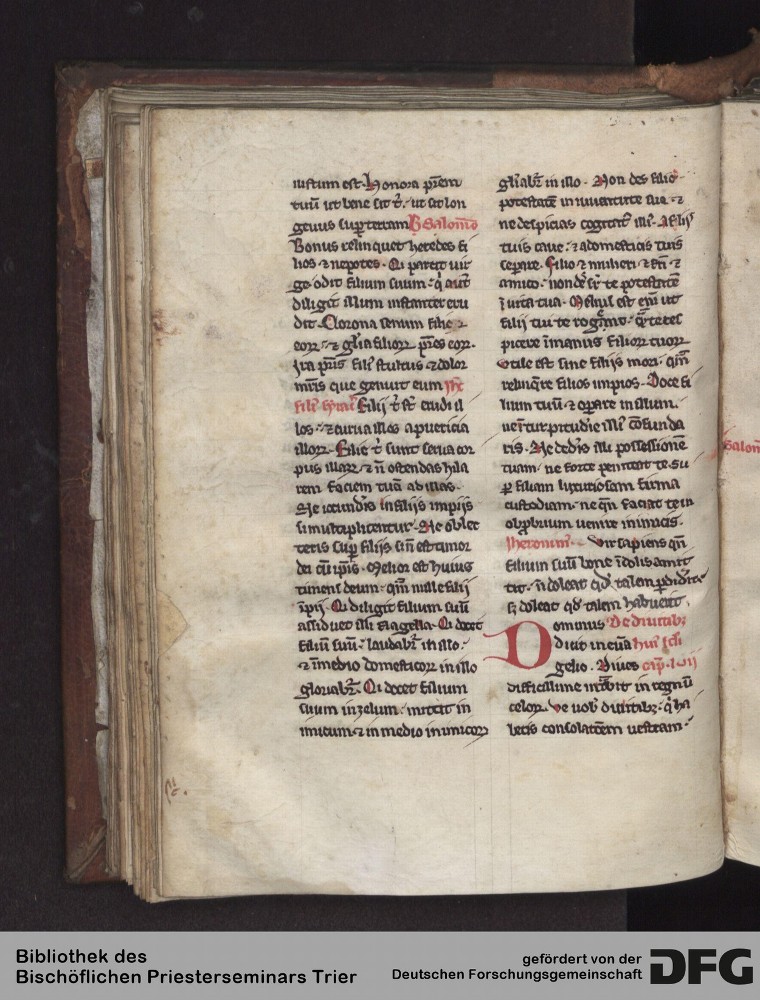 iustum est. Honora p̄rem
tuū ut bene sit t̄. ut sis lon
geuus sup̄ terram Salomō
Bonus relinquet heredes fi
lios ⁊ nepotes. Qi parcit uir
ge odit filium suum. q̄ aut̄
diligit illum instanter eru
dit. Corona senum filii
eoꝝ. ⁊ gl̄ia filioꝝ p̄res eoꝝ.
Ira pr̄is fili' stultus ⁊ dolor
mr̄is que genuit eum Ih̄c
fili' syrac Filij t̄ st̄ erudi il
los. ⁊ curua illos a puericia
illoꝝ. Filie t̄ sunt serua cor
pus illaꝝ. ⁊ ñ ostendas hila
rem faciem tuā ad illas.
Ne iocund̄is in filijs impijs
si multiplicentur. Ne oblec
teris sup̄ filijs si ñ est timor
dei cū ip̄is. Melior est huius
timens deum. qm̄ mille filij
īpij. Qi diligit filium suū
assiduet illi flagella. Qi docet
filiū suū. laudabr̄ in illo.
⁊ ī medio domesticoꝝ in illo
gloriabr̄. Qi docet filium
suum in zelum. mittit in
imicum. ⁊ in medio inimicoꝝ
gl̄iabr̄ in illo. Non des filio
potestatē in iuuentute sua. ⁊
ne despicias cogitat' illi'. A filijs
tuis caue. ⁊ a domesticis tuis
separe. Filio ⁊ mulieri ⁊ fr̄i ⁊
amico. non des sr̄ te potestatē
ī uita tua. Melius est eni ut
filij tui te rogent. q̄ te res
picere ī manus filioꝝ tuoꝝ
Utile est sine filijs mori. qm̄
relinq̄re filios impios. Doce fi
lium tuū ⁊ operare in illum.
ne ī turpitudīe illi' cōfunda
ris. Ne ded̄is illi possessionē
tuam. ne forte peniteat te. Su
p̄ filiam luxuriosam firma
custodiam. ne qn̄ faciat te in
obp̄brium uenire inimicis.
Iheronim'. Uir sapiens qn̄
filium suū bone īdolis amit
tit. ñ doleat qd' talem p̄didīt
sȝ doleat qd' talem habuerit.
Dominus De diuitibȝ
dicit in euā hui' scl̄i
gelio. Diues cap̄. lvij
difficillime intrabit in regnū
celoꝝ. Ve uob' diuitibȝ. q̄ ha
betis consolatōem uestram.
Salom
Bibliothek des
Bischöflichen Priesterseminars Trier
gefördert von der
Deutschen Forschungsgemeinschaft
DFG